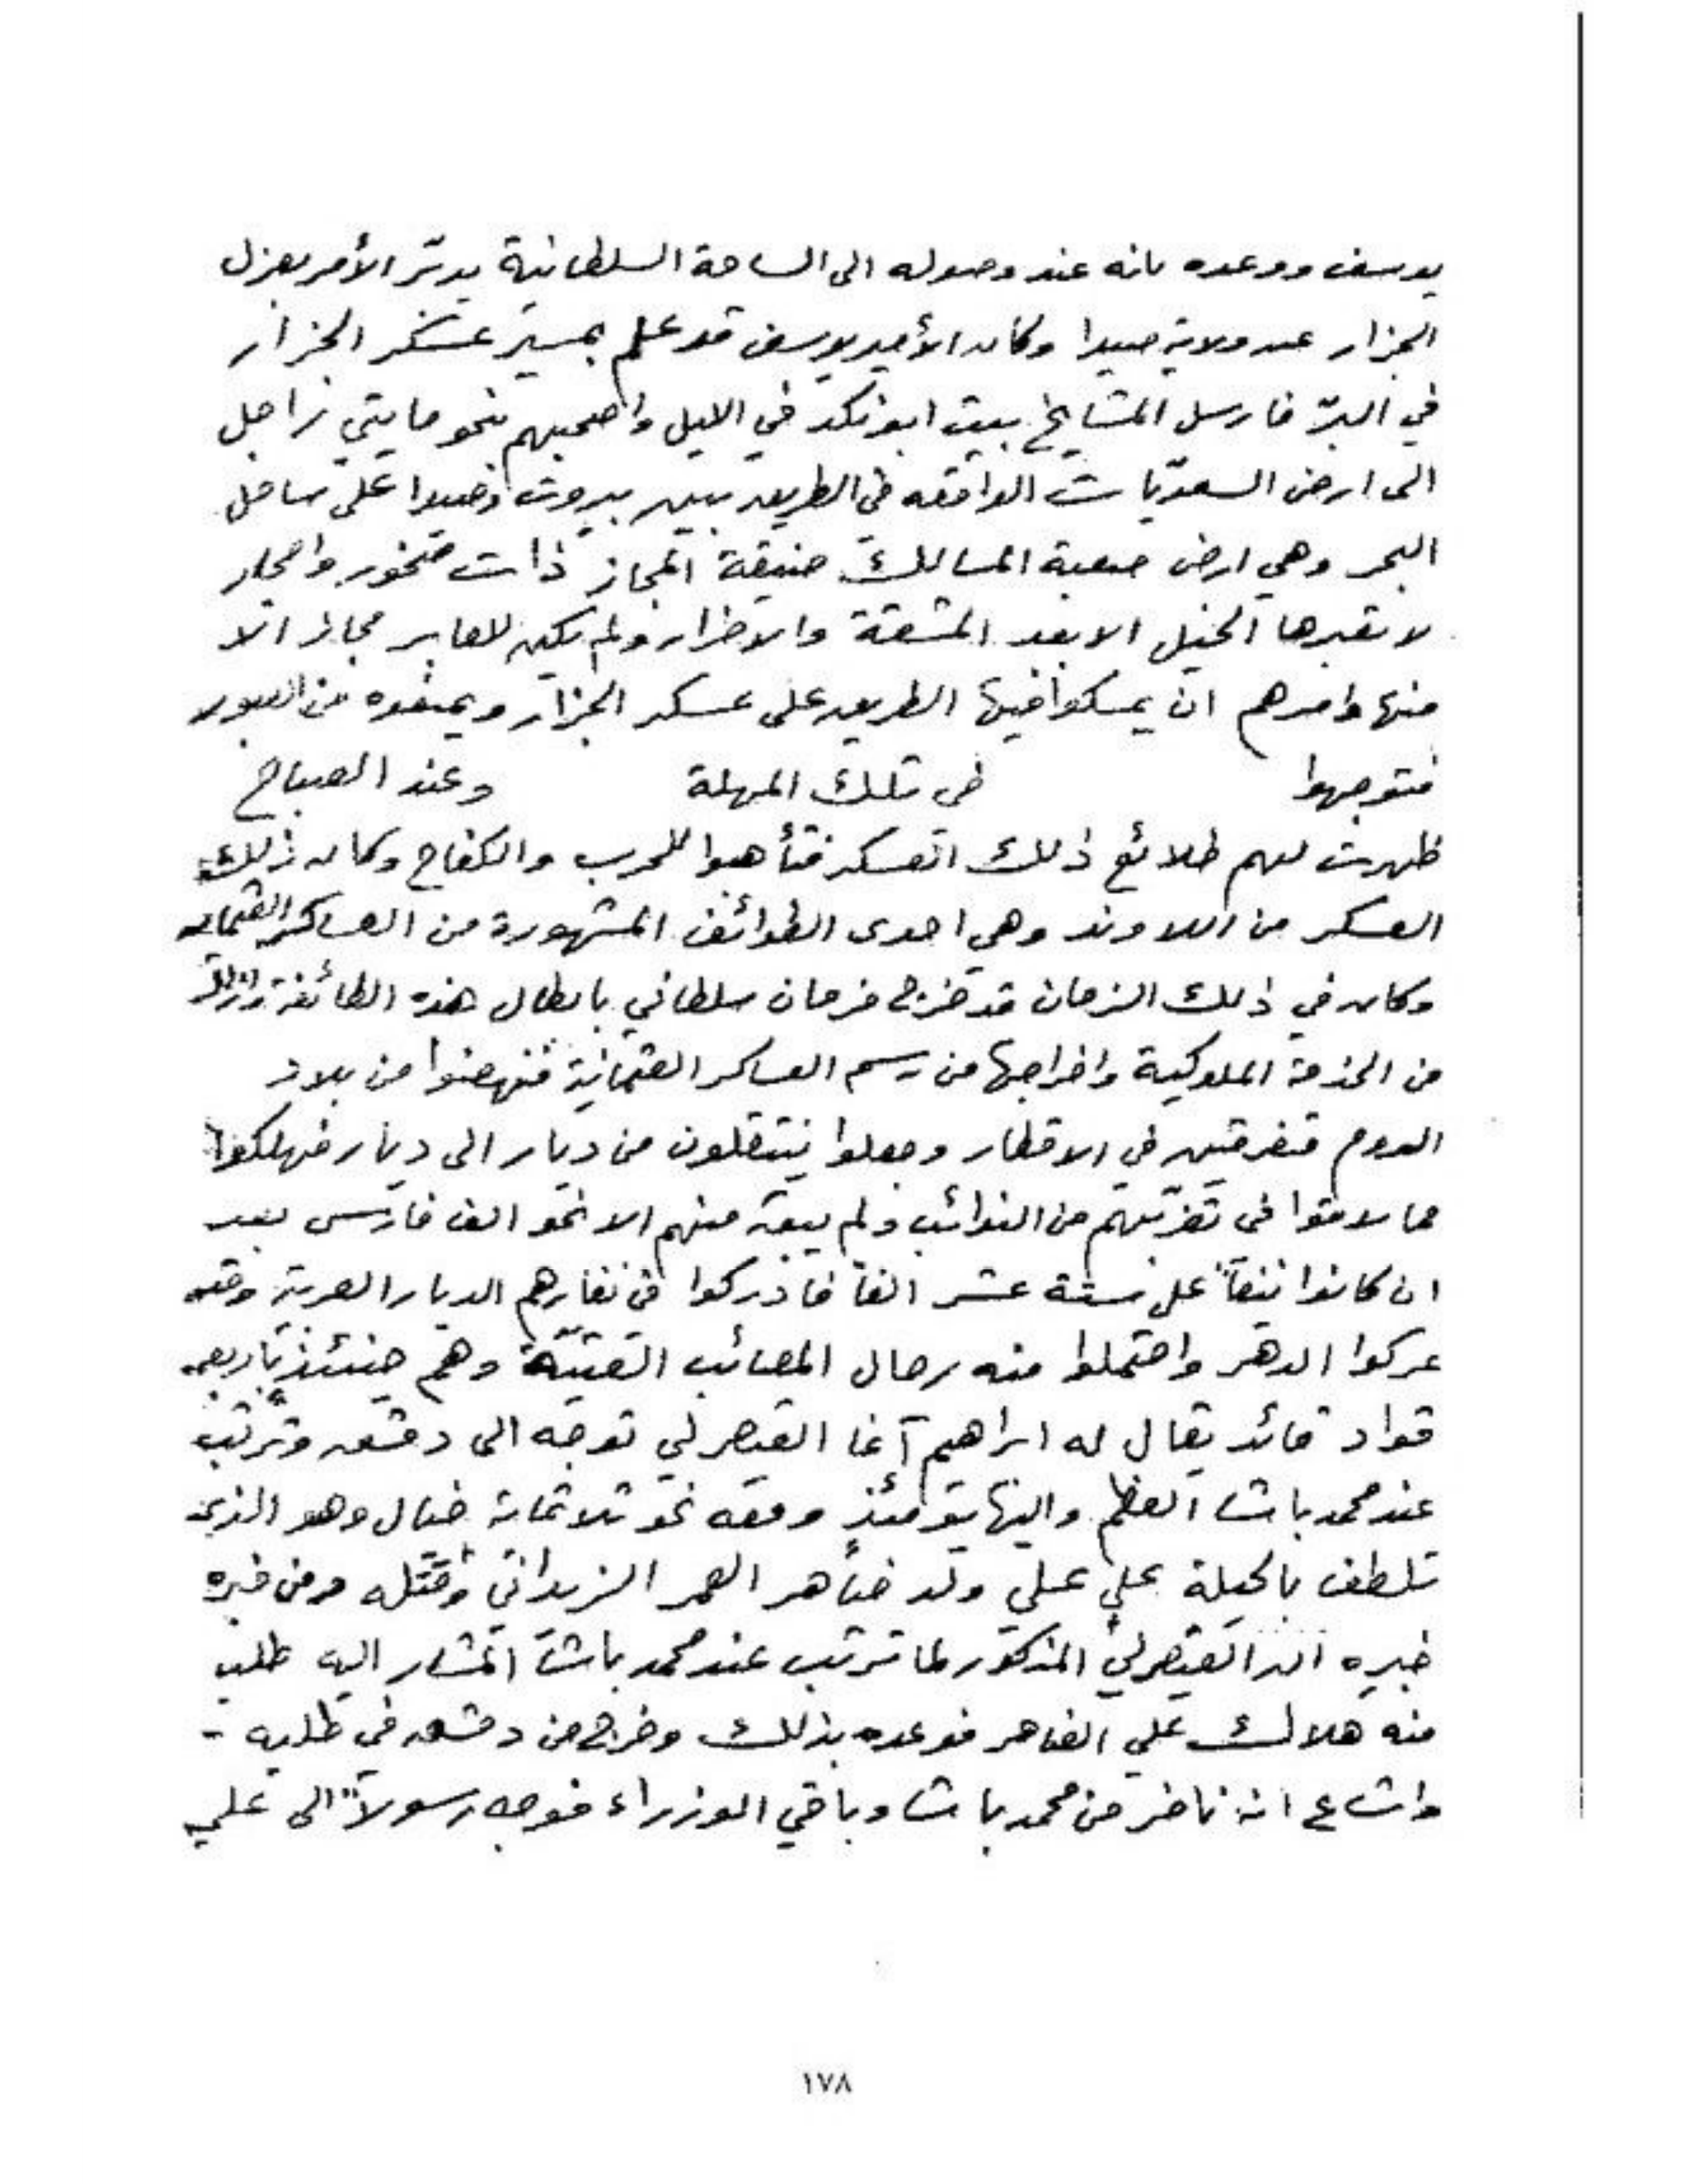 يوسف ووعده بانه عند وصوله الى الساحة السلطانية يدبّر الأمر بعزل
الجزار عن ولاية صيدا وكان الأمير يوسف قد علم بمسير عسكر الجزار
في البرّ فارسل المشايخ بيت ابو نكد في الليل واصحبهم نحو مايتي راجل
الى ارض السعديّات الواقعه في الطريق بين بيروت وصيدا على ساحل
البحر وهي ارض صعبة المسالك ضيقة المجاز ذات صخور واحجار
لا تعبرها الخيل الا بعد المشقة والاضرار ولم يكن للعابر مجاز الا
منها وامرهم ان يمسكوا فيها الطريق على عسكر الجزار ويمنعوه من العبور
فتوجهوا في تلك المهلة وعند الصباح
ظهرت لهم طلائع ذلك العسكر فتأهبوا للحرب والكفاح وكان ذلك
العسكر من اللاوند وهي احدى الطوائف المشهورة من العساكر العثمانيه
وكان في ذلك الزمان قد خرج فرمان سلطاني بابطال هذه الطائفة
من الخدمة الملوكية واخراجها من رسم العساكر العثمانية فنهضوا من بلاد
الروم متفرقين في الاقطار وجعلوا ينتقلون من ديار الى ديار فهلكوا
مما لاقوا في تغرّبهم من النوائب ولم يبق منهم الا نحو الف فارس بعد
ان كانوا نيفاً على ستة عشر الفاً فادركوا في نفارهم الديار العربية وقد
عركوا الدهر واحتملوا منه رحال المصائب وهم حينئذٍ باربعه
قواد قائد يقال له ابراهيم آغا القيصرلي توجّه الى دمشق وترتّب
عند محمد باشا العظم واليها يومئذٍ ومعه نحو ثلاثماية خيال وهو الذي
تلطف بالحيلة على علي ولد ضاهر العمر الزيداني وقتله ومن خبره
خبره ان القيصرلي المذكور لما ترتب عند محمد باشا المشار اليه طلب
منه هلاك علي الضاهر فوعده بذلك وخرج من دمشق في طلبه -
واشاع انه نافر من محمد باشا وباقي الوزراء فوجه رسولاً الى علي
١٧٨